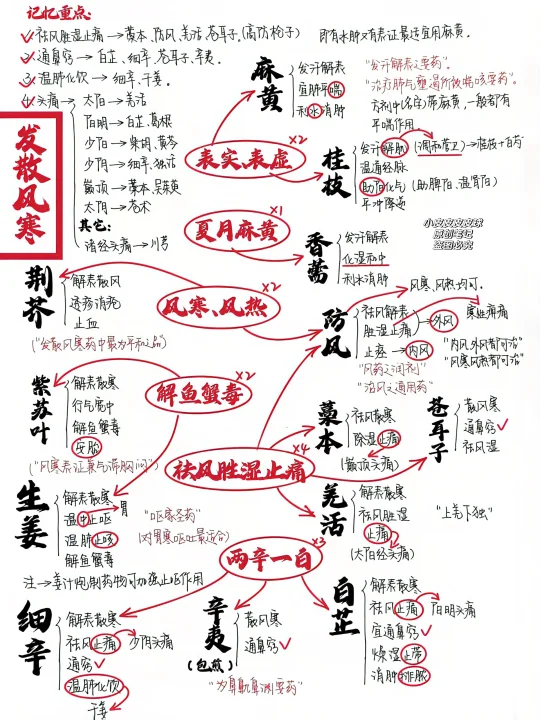 记忆重点:
1.祛风胜湿止痛→藁本、防风、羌活、苍耳子。(高防枪子)
即有水肿又有表证最适宜用麻黄。
2.通鼻窍→白芷、细辛、苍耳子、辛夷。
3.温肺化饮→细辛、干姜。
4.头痛→太阳→羌活
阳明→白芷、葛根
少阳→柴胡、黄芩
少阴→细辛、独活
巅顶→藁本、吴茱萸
太阴→苍术
其它:
诸经头痛→川芎
发散风寒
麻黄
发汗解表
宣肺平喘
利水消肿
"发汗解表之要药"。
"治疗肺气壅遏所致喘咳要药"。
方剂中(名字)带麻黄,一般都有
平喘作用
表实、表虚
×2
桂枝
发汗解肌→(调和营卫)→桂枝+白芍
温通经脉
助阳化气(助脾阳、温肾阳)
平冲降逆
小皮皮皮皮球
原创笔记
盗图必究
夏月麻黄
×1
香薷
发汗解表
化湿和中
利水消肿
荆芥
解表散风
透疹消疮
止血
("发散风寒药中最为平和之品")
风寒、风热
×2
防风
祛风解表
胜湿止痛→外风
止痉→内风
风寒、风热均可。
"内风外风都可治"
"风寒风热都可治"
"风药之润剂"
"治风之通用药"
紫苏叶
解表散寒
行气宽中
解鱼蟹毒
安胎
("风寒表证兼气滞胸闷")
解鱼蟹毒
×2
藁本
祛风散寒
除湿止痛
(巅顶头痛)
苍耳子
散风寒
通鼻窍
祛风湿
祛风胜湿止痛
×4
生姜
解表散寒
温中止呕→胃
温肺止咳
解鱼蟹毒
"呕家圣药"
(对胃寒呕吐最适合)
注→姜汁炮制药物可加强止呕作用
羌活
解表散寒
祛风胜湿
止痛
(太阳经头痛)
"上羌下独"
两辛一白
×3
细辛
解表散寒
祛风止痛→少阴头痛
通窍
温肺化饮
干姜
辛夷
(包煎)
散风寒
通鼻窍
"为鼻鼽鼻渊要药"
白芷
解表散寒
祛风止痛→阳明头痛
宣通鼻窍
燥湿止带
消肿排脓